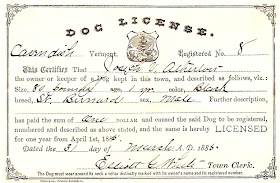 DOG LICENSE.
Cavendish Vermont. Registered No. 8
This Certifies That Joseph G. Atherton
the owner or keeper of a Dog kept in this town, and described as follows, viz.:
Size, 80 pounds age, 1 yr. color, Black
breed, St. Bernard sex, male Further description,
has paid the sum of one DOLLAR and caused the said DOG to be registered,
numbered and described as above stated; and the same is hereby LICENSED
for one year from April 1st, 188
Dated the 31 day of march A. D. 188
Elliott G. White Town Clerk.
The Dog must wear around its neck a collar distinctly marked with its owner's name and its registered number.